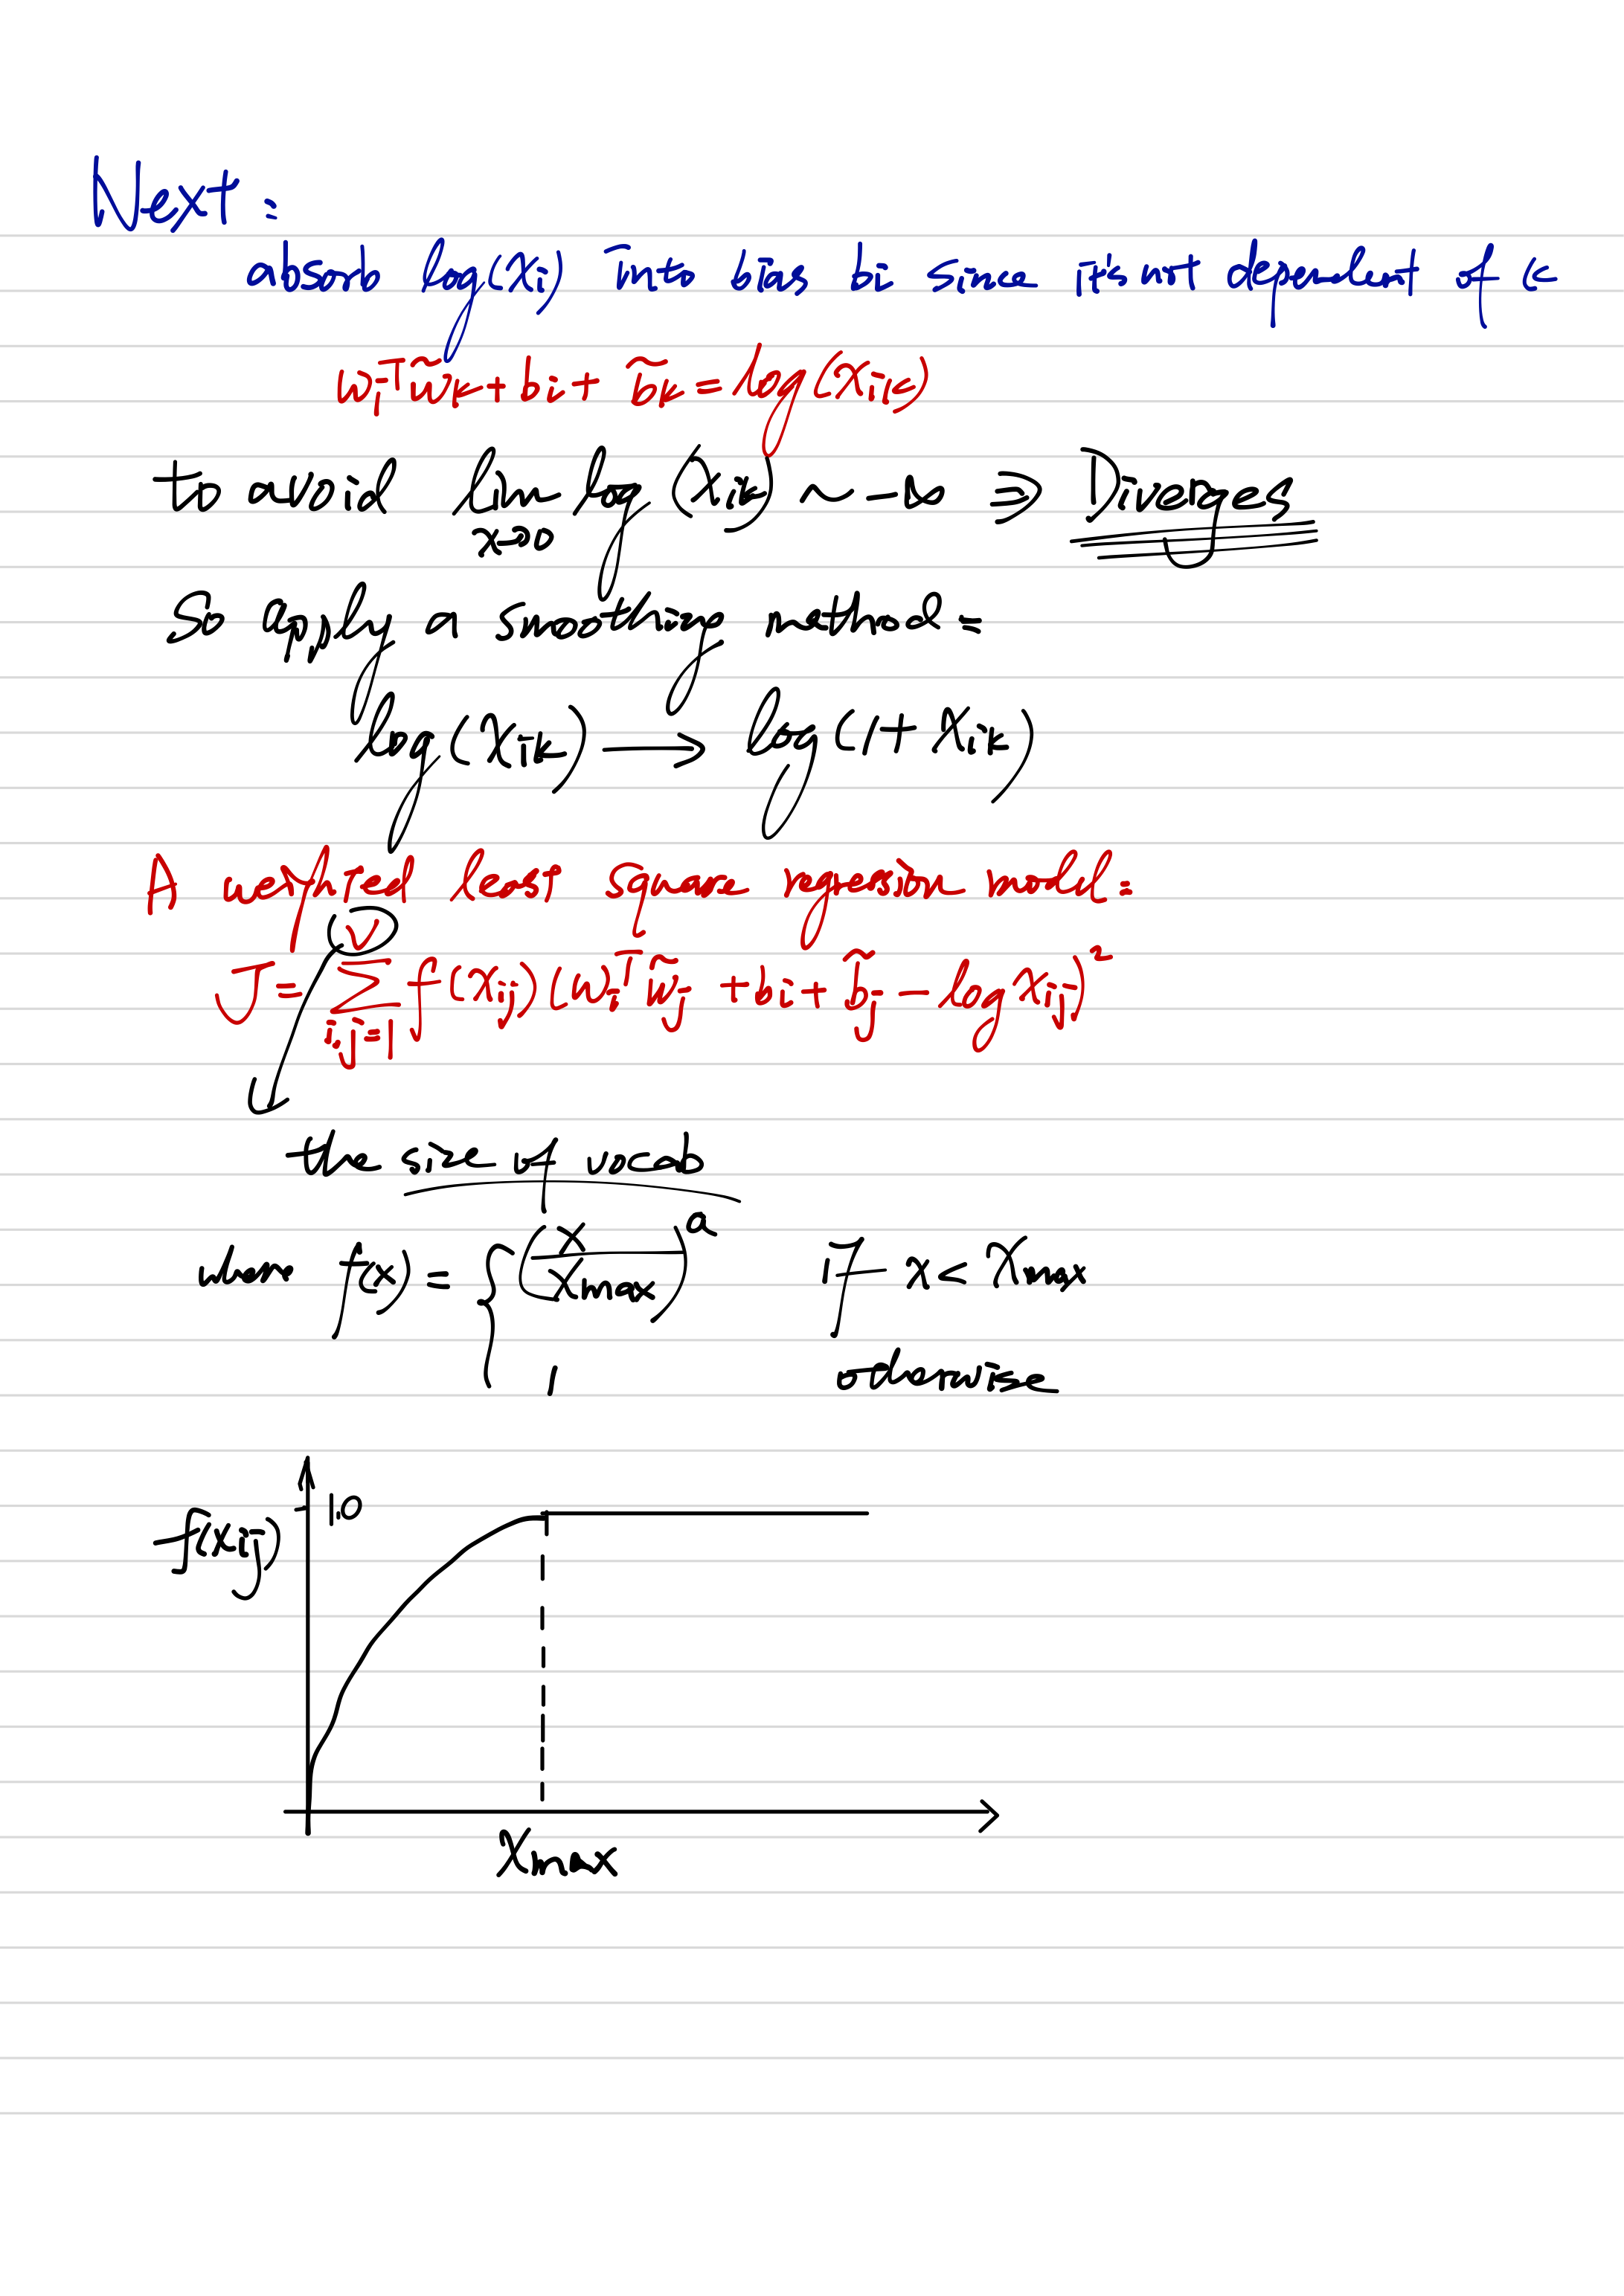 Next :
absorb log(Xi) into bias bi since it's not dependent of k
wiᵀw̃k + bi + b̃k = log(Xik)
to avoid lim log(Xik) ~ -∞ ⇒ Diverges
x→0
So apply a smoothing method :
log(Xik) → log(1 + Xik)
A weighted least square regression model :
J = Σ f(Xij) (wiᵀ w̃j + bi + b̃j - log Xij)²
V
i,j=1
the size of vocab
when f(x) = { (x / Xmax)ᵃ if x < Xmax
1 otherwise
1.0
f(Xij)
Xmax